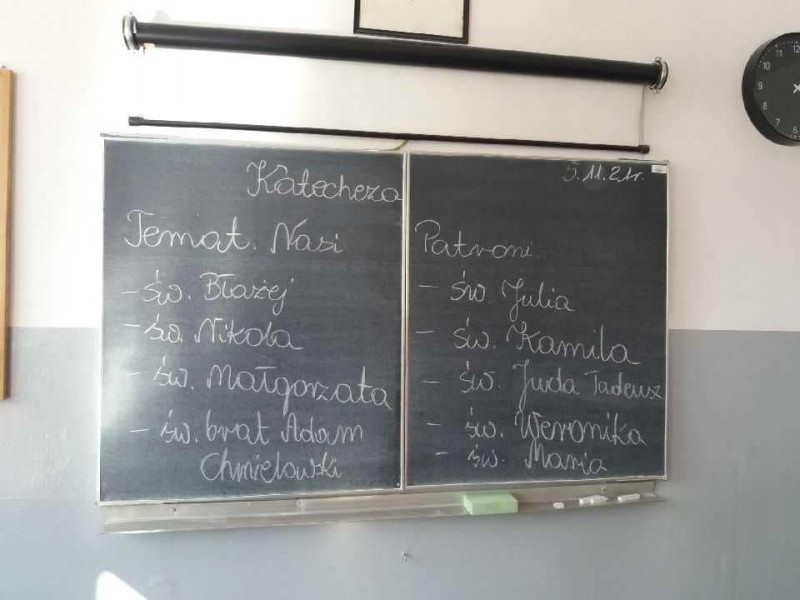 Katecheza 5.11.21r.
Temat. Nasi Patroni
- św. Błażej
- św. Nikola
- św. Małgorzata
- św. brat Adam
Chmielowski
- św. Julia
- św. Kamila
- św. Juda Tadeusz
- św. Weronika
- św. Maria
10
11
12
9
8
7
6